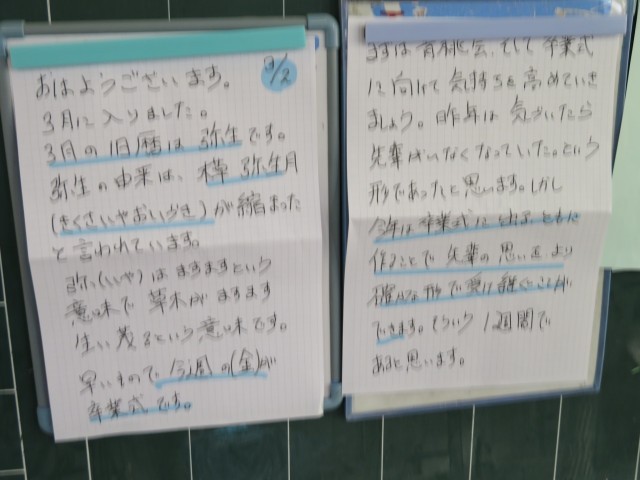 おはようございます。
3/2
3月に入りました。
3月の旧暦は 弥生です。
弥生の由来は、 弥生月
(きくさいやおいづき)が縮まった
と言われています。
弥(いや)は ますますという
意味で 草木が ますます
生い茂るという意味です。
早いもので 今週の(金)が
卒業式です。
まずは 会、そして 卒業式
に向けて 気持ちを高めていき
ましょう。昨年は 気づいたら
先輩がいなくなっていた。という
形であったと思います。しかし
今年は 卒業式に 出る、ともに
作ることで 先輩の思いを より
確かな形で受け継ぐことが
できます。そういう 1週間で
あると思います。